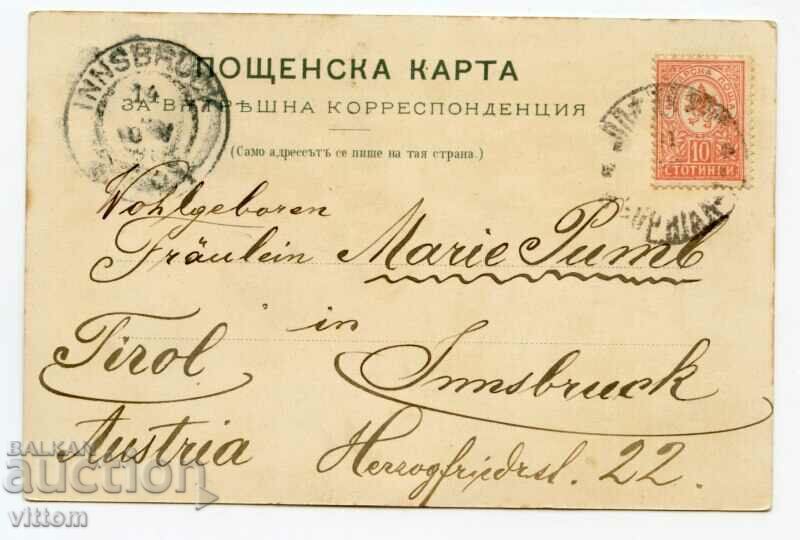 ПОЩЕНСКА КАРТА
ЗА ВѪТРѢШНА КОРРЕСПОНДЕНЦИЯ
(Само адрессътъ се пише на тая страна.)
INNSBRUCK
14
10
СТОТИНКИ
Wohlgeboren
Fräulein Marie Pumb
in
Tirol Innsbruck
Austria Herzogfriedrst. 22.
BALKAN
auction
vittom